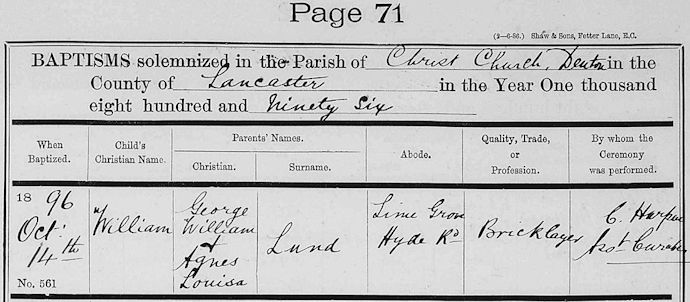 Page 71
(2—6-86.) Shaw & Sons, Fetter Lane, E.C.
BAPTISMS solemnized in the Parish of Christ Church, Denton in the
County of Lancaster in the Year One thousand
eight hundred and Ninety Six
When Baptized.
Child's Christian Name.
Parents' Names.
Christian.
Surname.
Abode.
Quality, Trade, or Profession.
By whom the Ceremony was performed.
1896
Oct:
14th
No. 561
William
George
William
+
Agnes
Louisa
Lund
Lime Grove
Hyde Rd
Bricklayer
C. Harper
Asst Curate